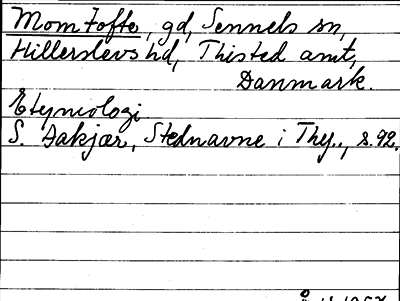 Momtofte, gd, Sennels sn,
Hillerslevs hd, Thisted amt,
Danmark.
Etymologi
S. Aakjær, Stednavne i Thy., s. 92.